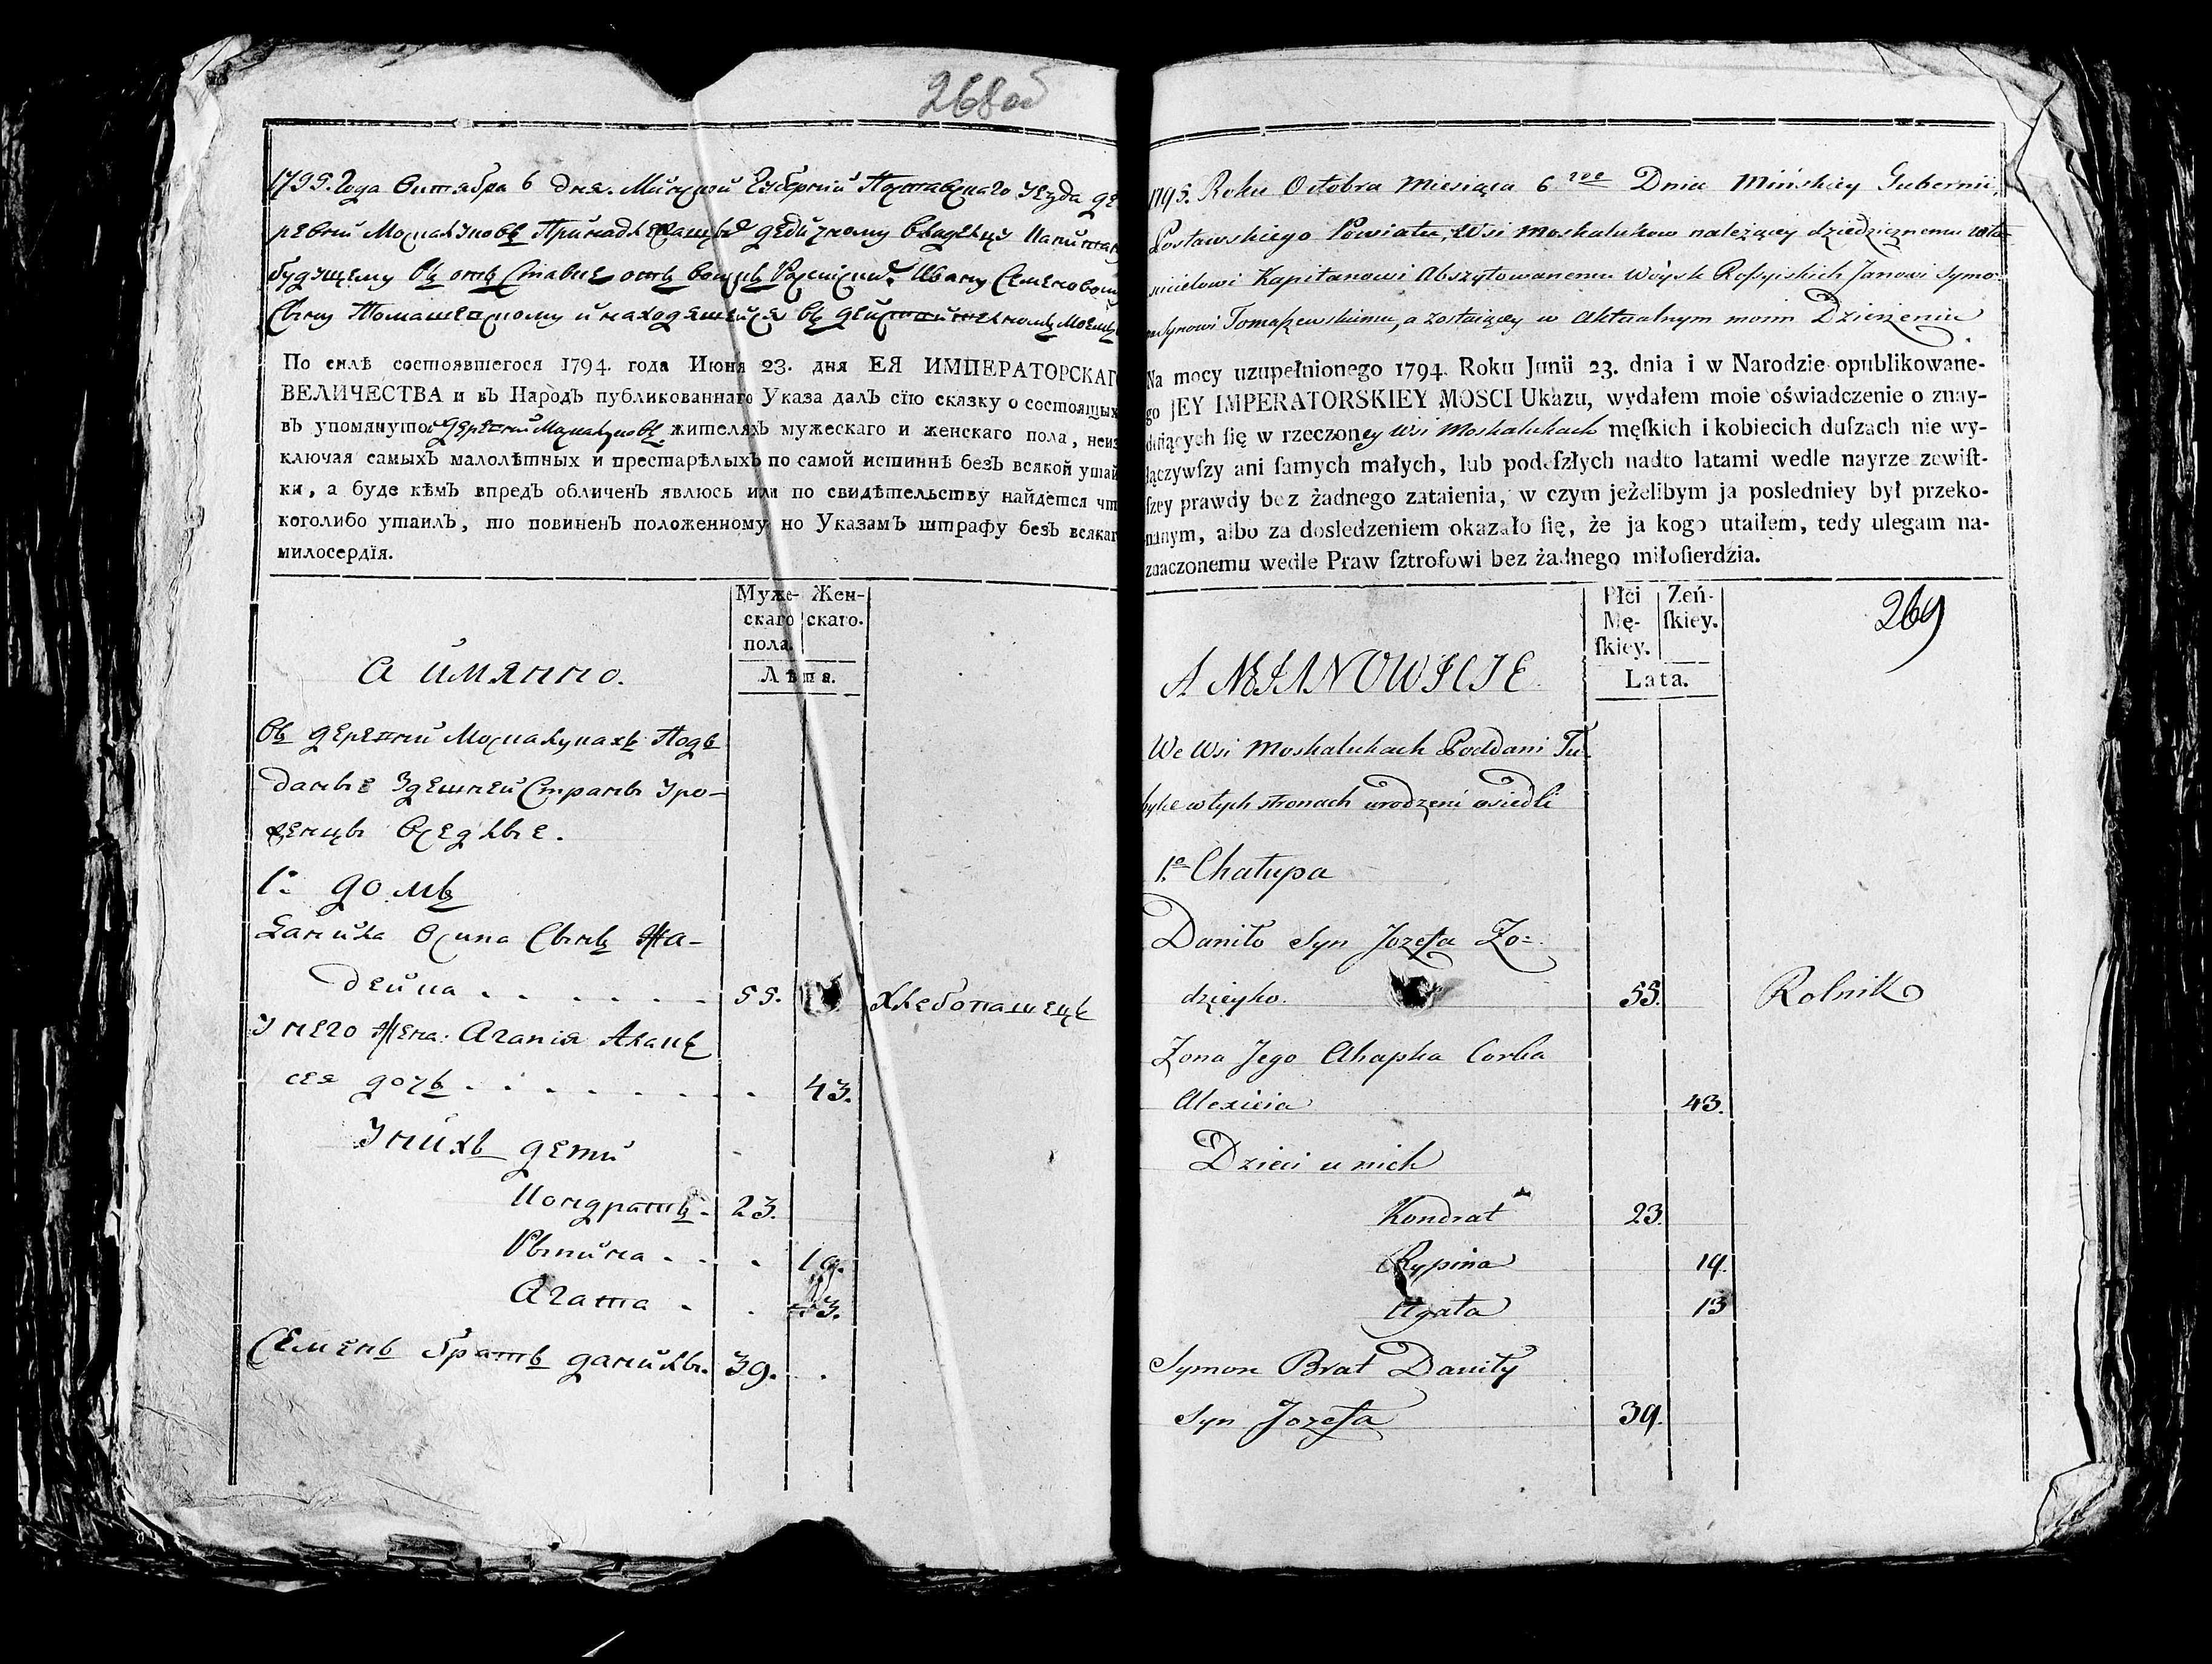 268об
1795. Года Октября 6 дня. Минской Губернии Поставскаго Уезда де
ревни Москалуковъ Принадлежащей дедичному владельцу Капитану
будущему въ отъ Ставке отъ воискъ Ивану Семенову
Сыну Томашевскому и находящейся въ действительномъ моемъ
По силѣ состоявшегося 1794. года Июня 23. дня ЕЯ ИМПЕРАТОРСКАГ
ВЕЛИЧЕСТВА и въ Народъ публикованнаго Указа далъ сїю сказку о состоящихъ
въ упомянутой деревни Москалуковъ жителяхъ мужескаго и женскаго пола, неиз
ключая самыхъ малолѣтныхъ и престарѣлыхъ по самой истиннѣ безъ всякой утай
ки, а буде кѣмъ впредъ обличенъ явлюсь или по свидѣтельству найдется чт
коголибо утаилъ, то повиненъ положенному по Указамъ штрафу безъ всякаг
милосердїя.
Муже- Жен-
скаго скаго.
пола.
А имянно.
Лѣта.
Въ деревни Москалукахъ Подъ
даные здешней Страны уро-
женцы Оседлые.
1е домъ
Данила Осипа Сынъ Жа-
дейка . . . . . . 55. Хлебопашецъ
У него жена: Агапія Алек
сея дочъ . . . . . . . 43.
У нихъ дети
Кондратъ . 23.
Рыпина . . . 19.
Агата . . 13.
Семенъ братъ данилы. 39. .
1795. Roku Octobra Miesiąca 6 go Dnia Mińskiey Gubernii,
Postawskiego Powiatu, Wsi Moskalukow należącey dziedzicznemu właś
cicielowi Kapitanowi Abszytowanemu Woysk Rossyiskich Janowi Symo=
na Synowi Tomaszewskiemu, a zostaiącey w aktualnym moim Dzierzeniu
Na mocy uzupełnionego 1794. Roku Junii 23. dnia i w Narodzie opublikowane-
go JEY IMPERATORSKIEY MOSCI Ukazu, wydałem moie oświadczenie o znay-
duiących ſię w rzeczoney Wsi Moskalukach męſkich i kobiecich duſzach nie wy-
łączywſzy ani ſamych małych, lub podeſzłych nadto latami wedle nayrzeczewiſt-
ſzey prawdy bez żadnego zataienia, w czym jeżelibym ja posledniey był przeko-
nanym, albo za dosledzeniem okazało ſię, że ja kogo utaiłem, tedy ulegam na-
znaczonemu wedle Praw ſztrofowi bez żadnego miłoſierdzia.
Płci Zeń-
Mę- ſkiey.
ſkiey.
269
A MIANOWICIE
Lata.
We Wsi Moskalukach Poddani Tu
byle w tych stronach urodzeni osiedli
1.e Chałupa
Daniło Syn Jozefa Żo=
dzieyko. 55. Rolnik
Żona Jego Ahapka Corka
Alexieia 43.
Dzieci u nich
Kondrat 23.
Rypina 19.
Agata 13
Symon Brat Daniły
Syn Jozefa 39.